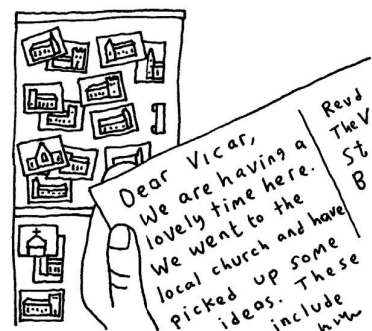 Dear Vicar,
We are having a
lovely time here.
We went to the
local church and have
picked up some
ideas. These
include
Revd
The V
St
B